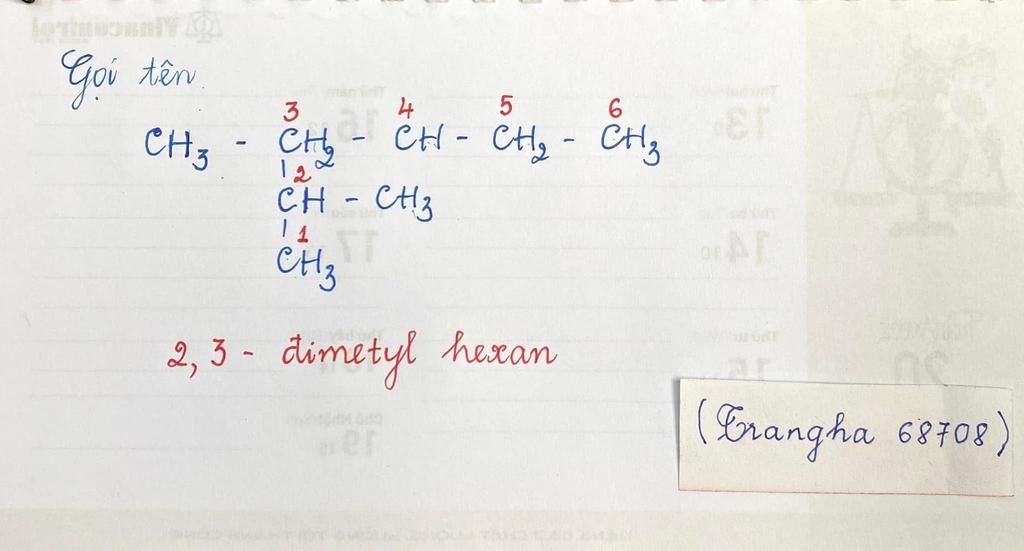 Gọi tên
3 4 5 6
CH3 - CH2 - CH - CH2 - CH3
2
CH - CH3
1
CH3
2, 3 - đimetyl hexan
(Trangha 68708)